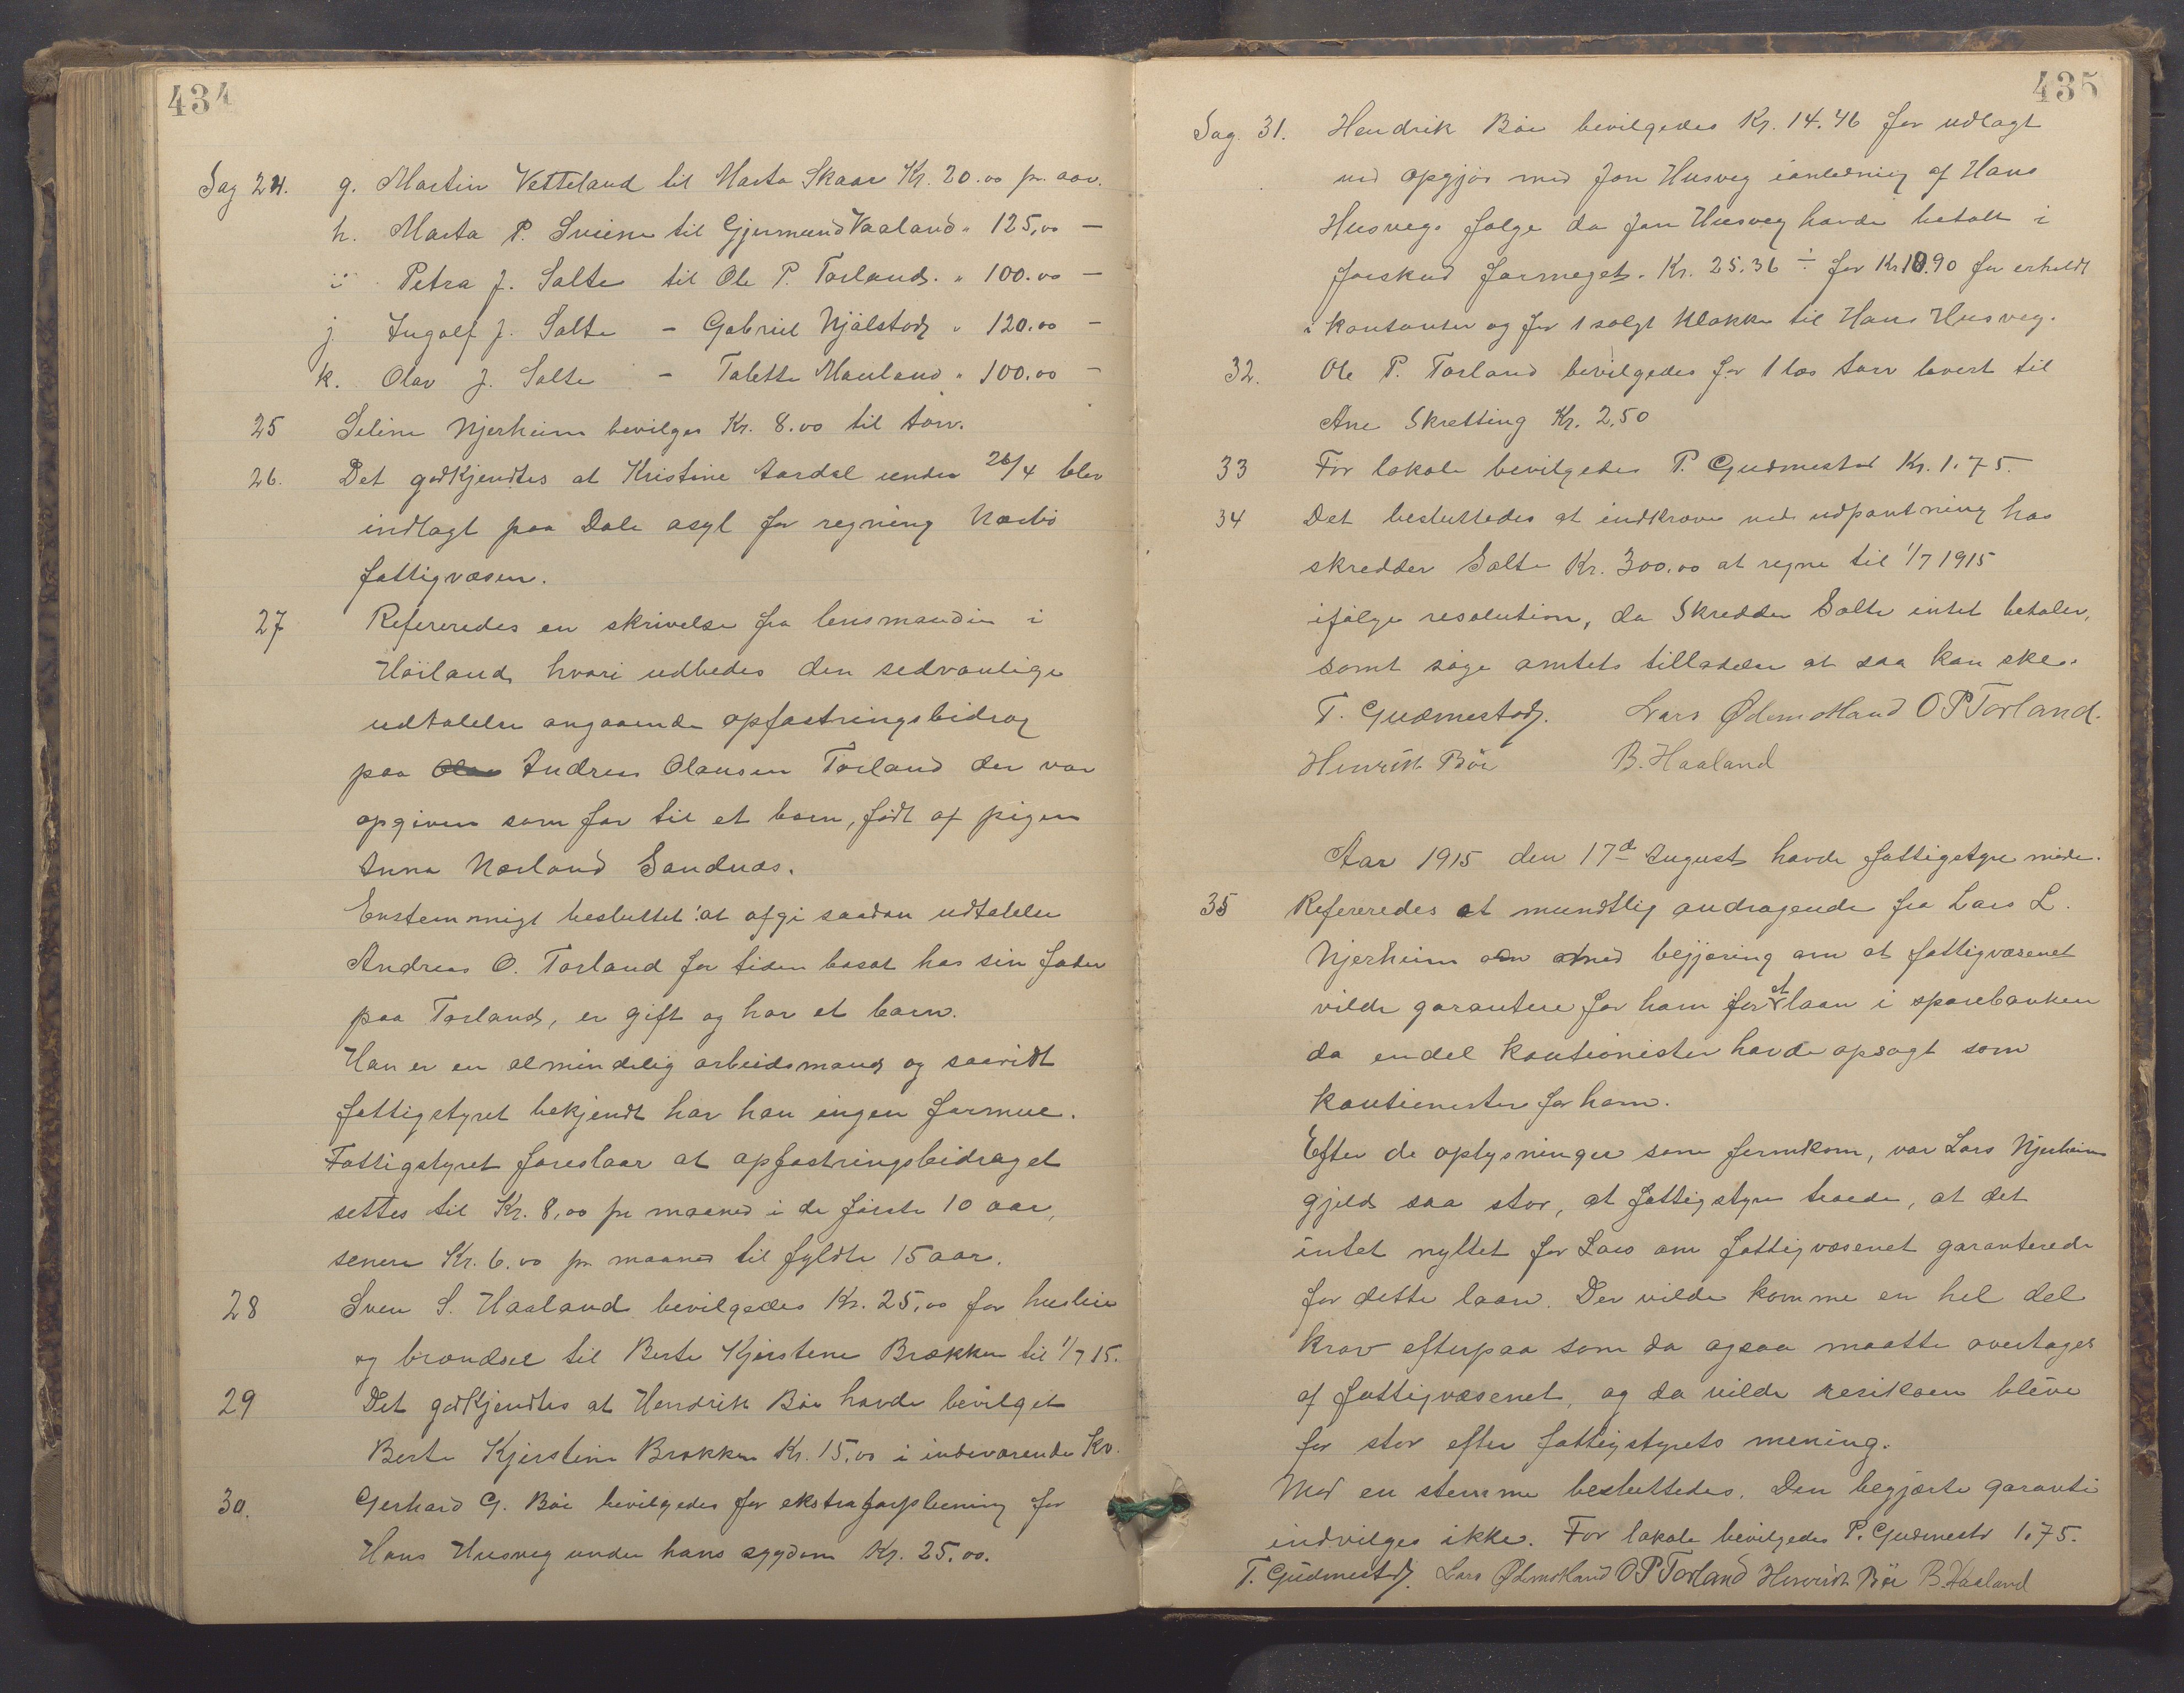 434
Sag 24. g. Martin Vetteland til Marta Skaar Kr. 20.00 pr. aar.
h. Marta P. Sviene til Gjermund Vaaland " 125,00 —
i. Petra J. Salte til Ole P. Torland. " 100.00 —
j Ingolf J. Salte – Gabriel Njålstad " 120.00 —
k. Olav J. Salte – Talette Mauland " 100.00 —
25 Seline Njerheim bevilges Kr. 8.00 til torv.
26. Det godkjendtes at Kristine Aardal under 26/4 blev
indlagt paa Dale asyl for regning Nærbø
fattigvæsen.
27 Refereredes en skrivelse fra lensmanden i
Høiland, hvori udbedes den sedvanlige
udtalelse angaaende opfostringsbidrag
paa Andreas Olausen Torland der var
opgiven som far til et barn, født af pigen
Anna Nærland Sandnæs.
Enstemmigt besluttet: at afgi saadan udtalelse
Andreas O. Torland for tiden bosat hos sin fader
paa Torland, er gift og har et barn.
Han er en almindelig arbeidsmand og saavidt
fattigstyret bekjendt har han ingen formue.
Fattigstyret foreslaar at opfostringsbidraget
settes til Kr. 8,00 pr maaned i de første 10 aar,
senere Kr. 6.00 pr. maaned til fyldte 15 aar.
28 Sven S. Haaland bevilgedes Kr. 25,00 for husleie
og brændsel til Berte Kjerstene Brekken til 1/7 15.
29 Det godkjendtes at Hendrik Bøe havde bevilget
Berte Kjerstine Brekken Kr. 15,00 i indeværende Kv.
30. Gerhard G. Bøe bevilgedes for ekstraforpleining for
Hans Husveg under hans sygdom Kr. 25.00.
435
Sag. 31. Hendrik Bøe bevilgedes Kr. 14.46 for udlagt
ved opgjør med Jon Husveg ianledning af Hans
Husvegs følge da Jon Husveg havde betalt i
forskud formeget. Kr. 25.36 ÷ for Kr 10.90 for erholdt
i kontanter og for 1 solgt klokke til Hans Husveg.
32. Ole P. Torland bevilgedes for 1 læs torv levert til
Ane Skretting Kr. 2,50
33 For lokale bevilgedes P. Gudmestad Kr. 1.75.
34 Det besluttedes at indkræve ved udpantning hos
skredder Salte Kr. 300.00 at regne til 1/7 1915
ifølge resolution, da Skredder Salte intet betaler,
samt søge amtets tilladelse at saa kan ske.
T. Gudmestad. Lars Ødemotland O P Torland.
Henrik Bøe B. Haaland
Aar 1915 den 17de August havde fattigstyre møde.
35 Refereredes et mundtlig andragende fra Lars L.
Njerheim med begjæring om at fattigvæsenet
vilde garantere for ham for et laan i sparebanken
da endel kautionister havde opsagt som
kautionister for ham.
Efter de oplysninger som fremkom, var Lars Njerheims
gjeld saa stor, at fattigstyre troede, at det
intet nyttet for Lars om fattigvæsenet garanterede
for dette laan. Der vilde komme en hel del
krav efterpaa som da ogsaa maatte overtages
af fattigvæsenet, og da vilde resikoen bleve
for stor efter fattigstyrets mening.
Mod en stemme besluttedes. Den begjærte garanti
indvilges ikke. For lokale bevilgedes P. Gudmestd 1.75.
T. Gudmestad. Lars Ødemotland O P Torland Henrik Bøe B. Haaland